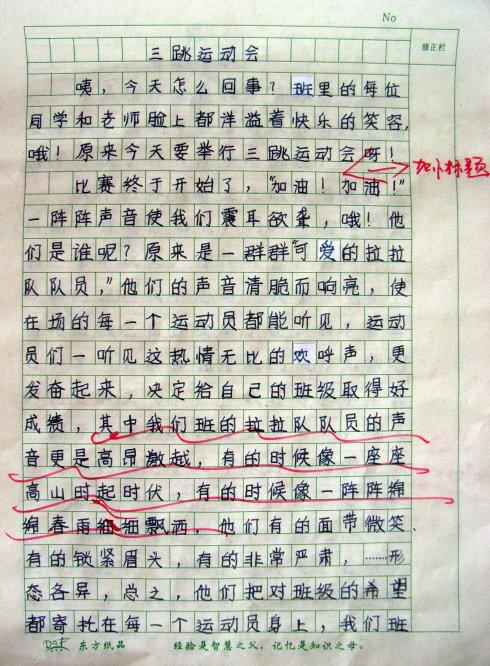 No
修正栏
三跳运动会
咦，今天怎么回事？班里的每位
同学和老师脸上都洋溢着快乐的笑容，
哦！原来今天要举行三跳运动会呀！
加小标题
比赛终于开始了，“加油！加油！”
一阵阵声音使我们震耳欲聋，哦！他
们是谁呢？原来是一群群“可爱的拉拉
队队员，”他们的声音清脆而响亮，使
在场的每一个运动员都能听见，运动
员们一听见这热情无比的欢呼声，更
发奋起来，决定给自己的班级取得好
成绩，其中我们班的拉拉队队员的声
音更是高昂激越，有的时候像一座座
高山时起时伏，有的时候像一阵阵绵
绵春雨细细飘洒，他们有的面带微笑．
有的锁紧眉头，有的非常严肃，……形
态各异，总之，他们把对班级的希望
都寄托在每一个运动员身上，我们班
东方纸品 经验是智慧之父，记忆是知识之母。